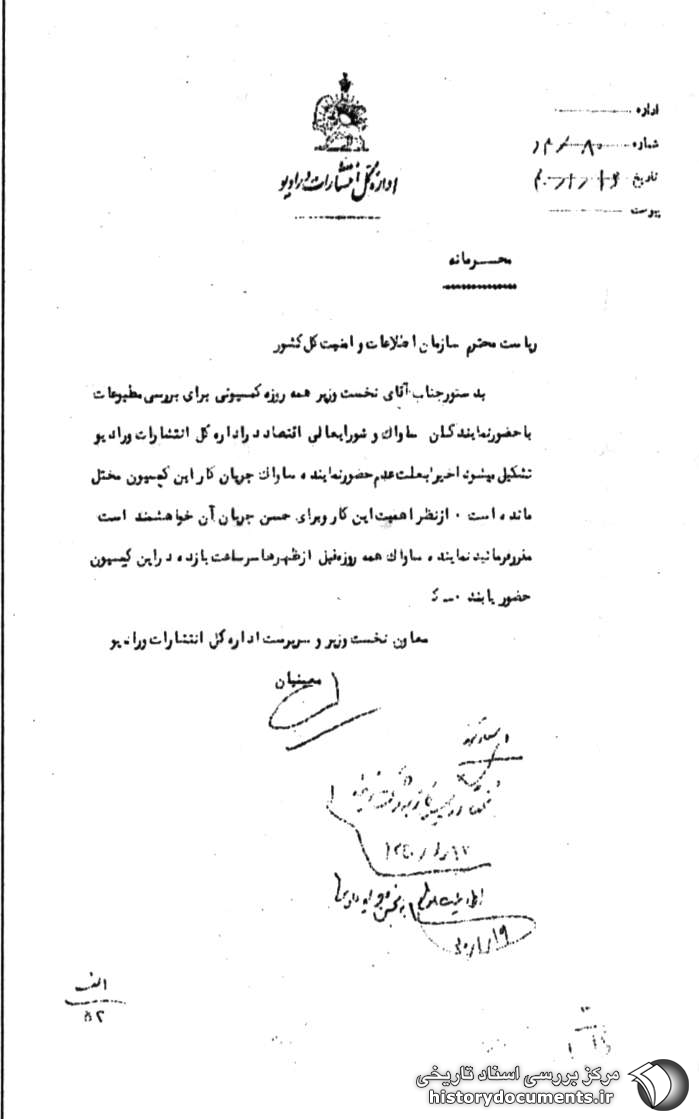 اداره
شماره
تاریخ
پیوست
اداره کل انتشارات و رادیو
محـــرمانه
ریاست محترم سازمان اطلاعات و امنیت کل کشور
بدستور جناب آقای نخست وزیر همه روزه کمسیونی برای بررسی مطبوعات
با حضور نمایندگان ساواک و شورایعالی اقتصاد در اداره کل انتشارات و رادیو
تشکیل میشود اخیرا بعلت عدم حضور نماینده ساواک جریان کار این کمیسیون مختل
مانده است ۰ از نظر اهمیت این کار و برای حسن جریان آن خواهشمند است
مقرر فرمائید نماینده ساواک همه روزه قبل از ظهرها سر ساعت یازده در این کمیسیون
حضور یابند ۰
معاون نخست وزیر و سرپرست اداره کل انتشارات و رادیو
معینیان
الف
۸۲
مرکز بررسی اسناد تاریخی
historydocuments.ir